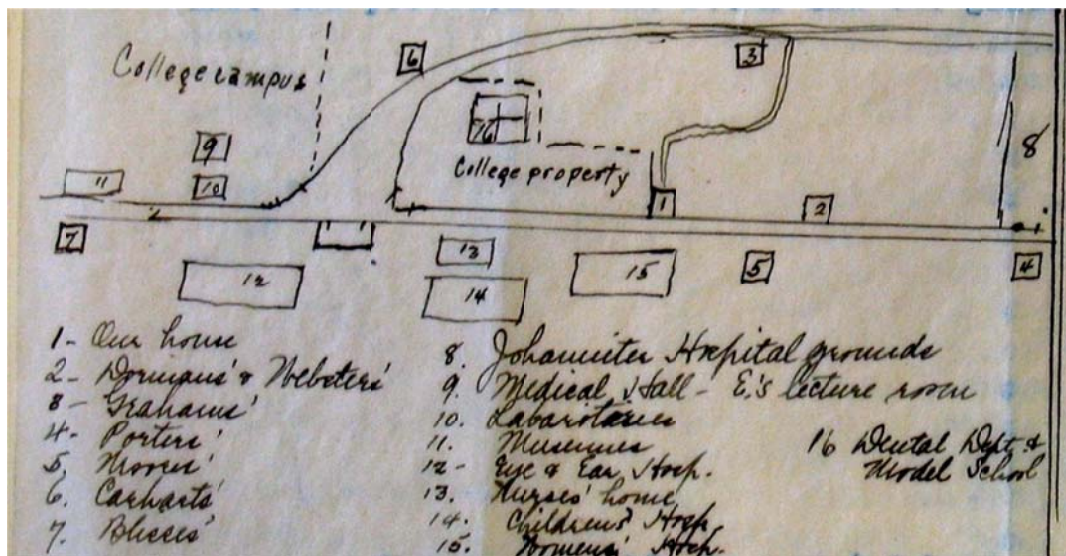 College campus
6
3
9
16
8
10
College property
11
1
2
7
13
5
4
12
14
15
1- Our home
2- Dormans' & Websters'
8- Grahams'
4- Porters'
5. Moores'
6. Carharts'
7. Blisses'
8. Johanniter Hospital grounds
9. Medical Hall - E.'s lecture room
10. Labaritories
11. Museums
12- Eye & Ear Hosp.
13. Nurses' home
14. Childrens' Hosp.
15. Womens' Hosp.
16 Dental Dept. &
Model School